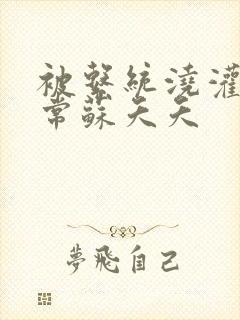 被繫統澆灌
常蘇夭夭
夢飛自己